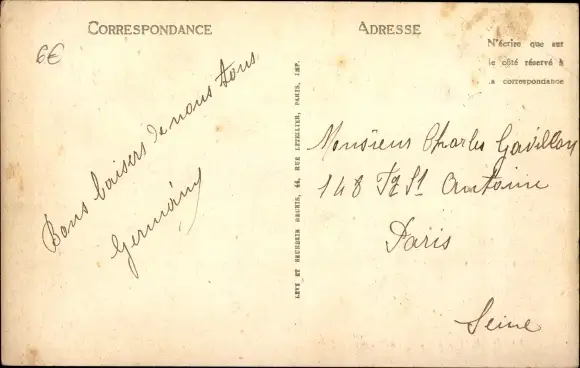 CORRESPONDANCE
6€
Bons baisers de nous tous
Germány
LEVY ET NEURDEIN REUNIS, 44, RUE LETELLIER, PARIS, IMP.
ADRESSE
N'écrire que sur
le côté réservé à
la correspondance
Monsieur Charles Gavillon
148 Fg St Antoine
Paris
Seine